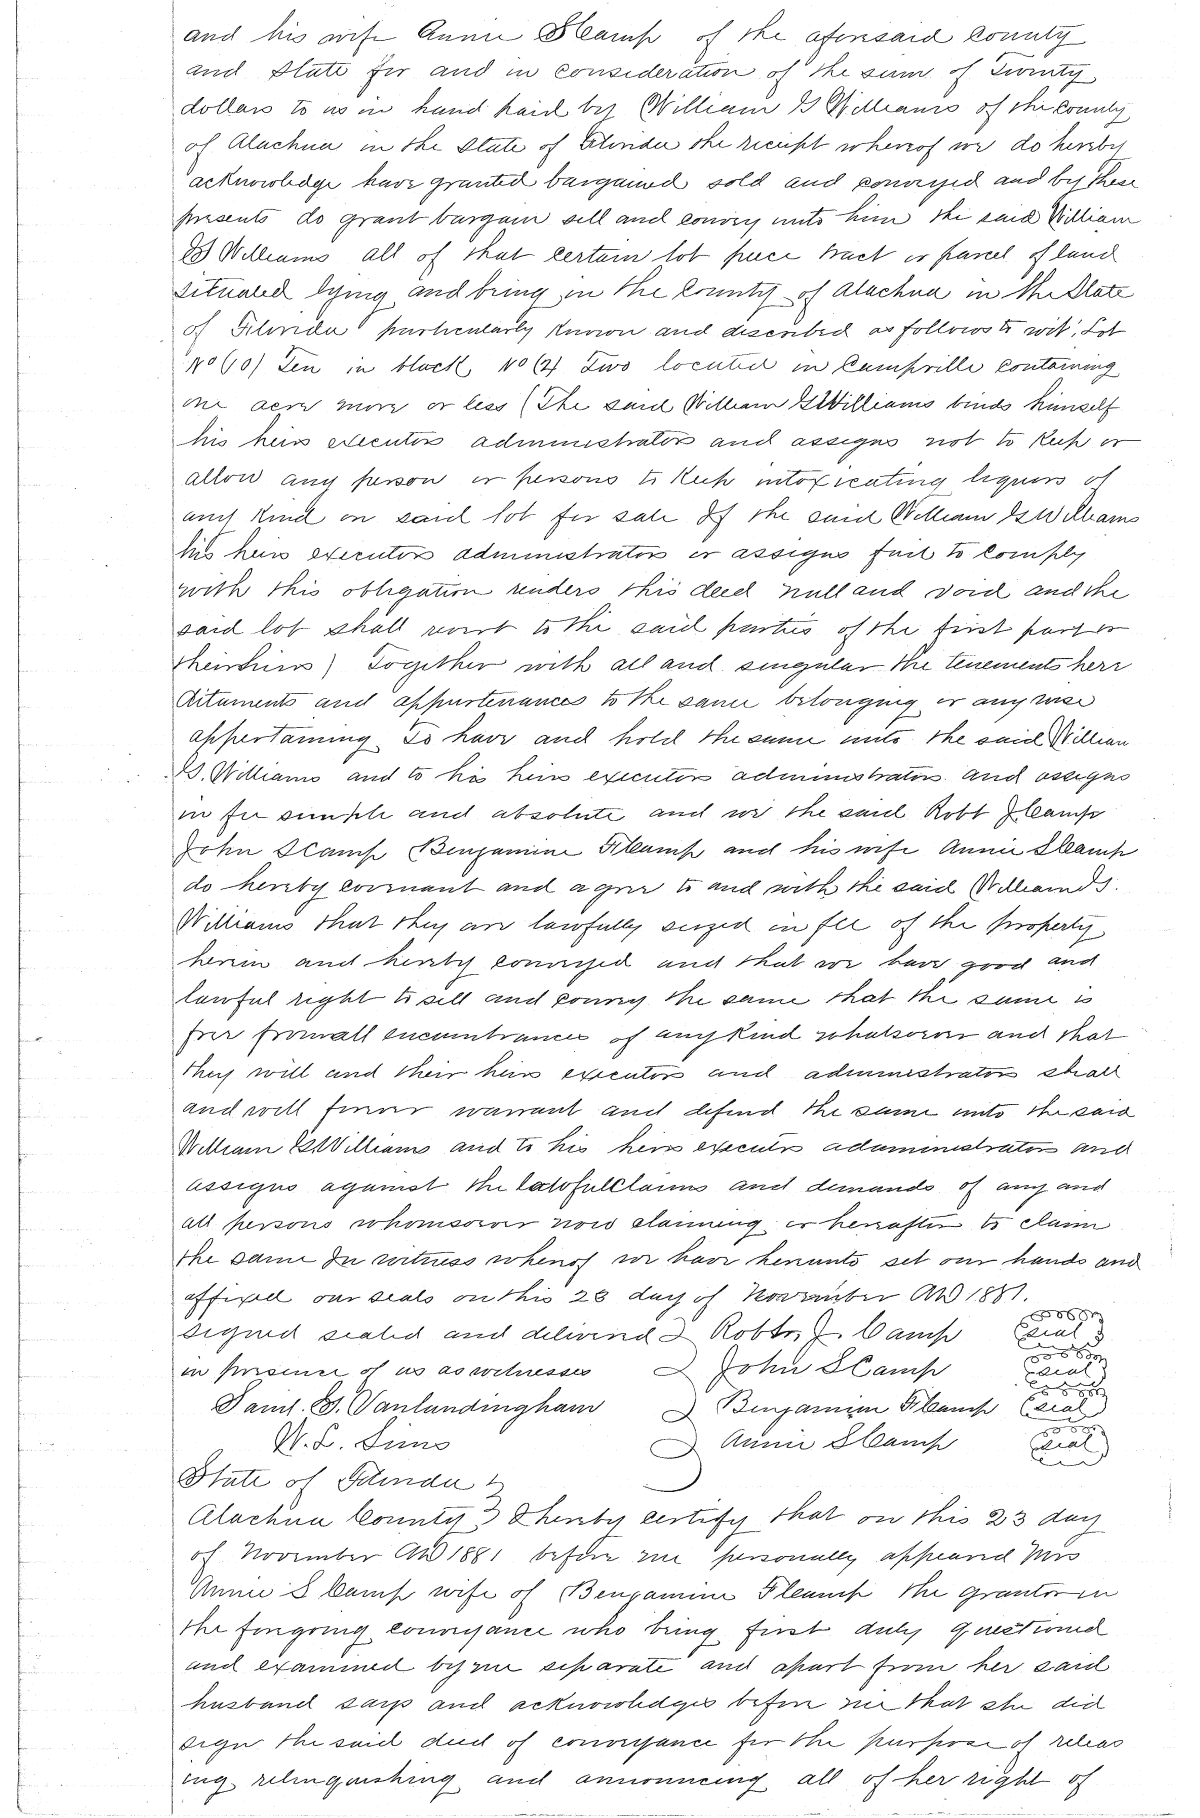 and his wife Annie S Camp of the aforesaid County
and State for and in consideration of the sum of Twenty
dollars to us in hand paid by William G Williams of the County
of Alachua in the State of Florida the receipt whereof we do hereby
acknowledge have granted bargained sold and conveyed and by these
presents do grant bargain sell and convey unto him the said William
G Williams all of that certain lot piece tract or parcel of land
situated lying and being in the County of Alachua in the State
of Florida particularly known and described as follows to wit; Lot
No (10) Ten in block No (2) Two located in Campville containing
one acre more or less (The said William G Williams binds himself
his heirs executors administrators and assigns not to keep or
allow any person or persons to keep intoxicating liquors of
any kind on said lot for sale If the said William G Williams
his heirs executors administrators or assigns fail to comply
with this obligation renders this deed null and void and the
said lot shall revert to the said parties of the first part or
their heirs) Together with all and singular the tenements here
ditaments and appurtenances to the same belonging or any wise
appertaining To have and hold the same unto the said William
G. Williams and to his heirs executors administrators and assigns
in fee simple and absolute and we the said Robt J Camp
John S Camp Benjamine F Camp and his wife Annie S Camp
do hereby covenant and agree to and with the said William G.
Williams that they are lawfully seized in fee of the property
herein and hereby conveyed and that we have good and
lawful right to sell and convey the same that the same is
free from all encumbrances of any kind whatsoever and that
they will and their heirs executors and administrators shall
and will forever warrant and defend the same unto the said
William G Williams and to his heirs executors administrators and
assigns against the lawful Claims and demands of any and
all persons whomsoever now claiming or hereafter to claim
the same In witness whereof we have hereunto set our hands and
affixed our seals on this 23 day of November AD 1881.
Signed sealed and delivered Robtr. J. Camp (seal)
in presence of us as witnesses John S Camp (seal)
Saml. G. Vanlandingham Benjamin F Camp (seal)
W. L. Sims Annie S Camp (seal)
State of Florida
Alachua County I hereby certify that on this 23 day
of November AD 1881 before me personally appeared Mrs
Annie S Camp wife of Benjamine F Camp the grantor in
the foregoing conveyance who being first duly questioned
and examined by me separate and apart from her said
husband says and acknowledges before me that she did
sign the said deed of conveyance for the purpose of releas
ing relinquishing and announcing all of her right of